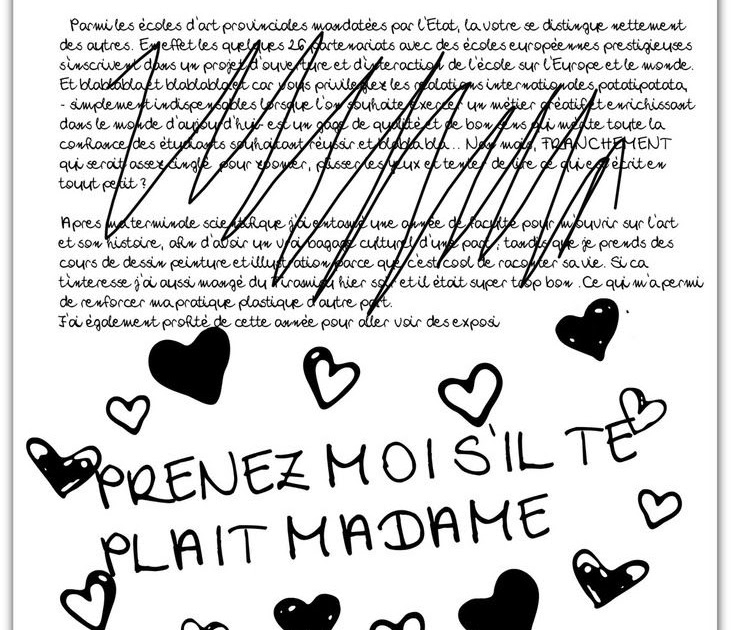 Parmi les écoles d'art provinciales mandatées par l'Etat, la votre se distingue nettement
des autres. En effet les quelques 26 partenariats avec des écoles européennes prestigieuses
s'inscrivent dans un projet d'ouverture et d'interaction de l'école sur l'Europe et le monde.
Et blablabla et blablabla et car vous privilegiez les relations internationales, patatipatata,
- simplement indispensables lorsque l'on souhaite exercer un métier créatif et enrichissant
dans le monde d'aujourd'hui- est un gage de qualité et de bon sens qui mérite toute la
confiance des étudiants souhaitant réussir et blablabla... Non mais, FRANCHEMENT
qui serait assez cinglé pour zoomer, plisser les yeux et tenter de lire ce qui est écrit en
touut petit ?
Apres ma terminale scientifique j'ai entamé une année de faculté pour m'ouvrir sur l'art
et son histoire, afin d'avoir un vrai bagage culturel d'une part ; tandis que je prends des
cours de dessin peinture et illustration parce que c'est cool de raconter sa vie. Si ca
t'interesse j'ai aussi mangé du tiramisu hier soir et il était super trop bon . Ce qui m'a permi
de renforcer ma pratique plastique d'autre part.
J'ai également profité de cette année pour aller voir des exposi
PRENEZ MOI S'IL TE
PLAIT MADAME